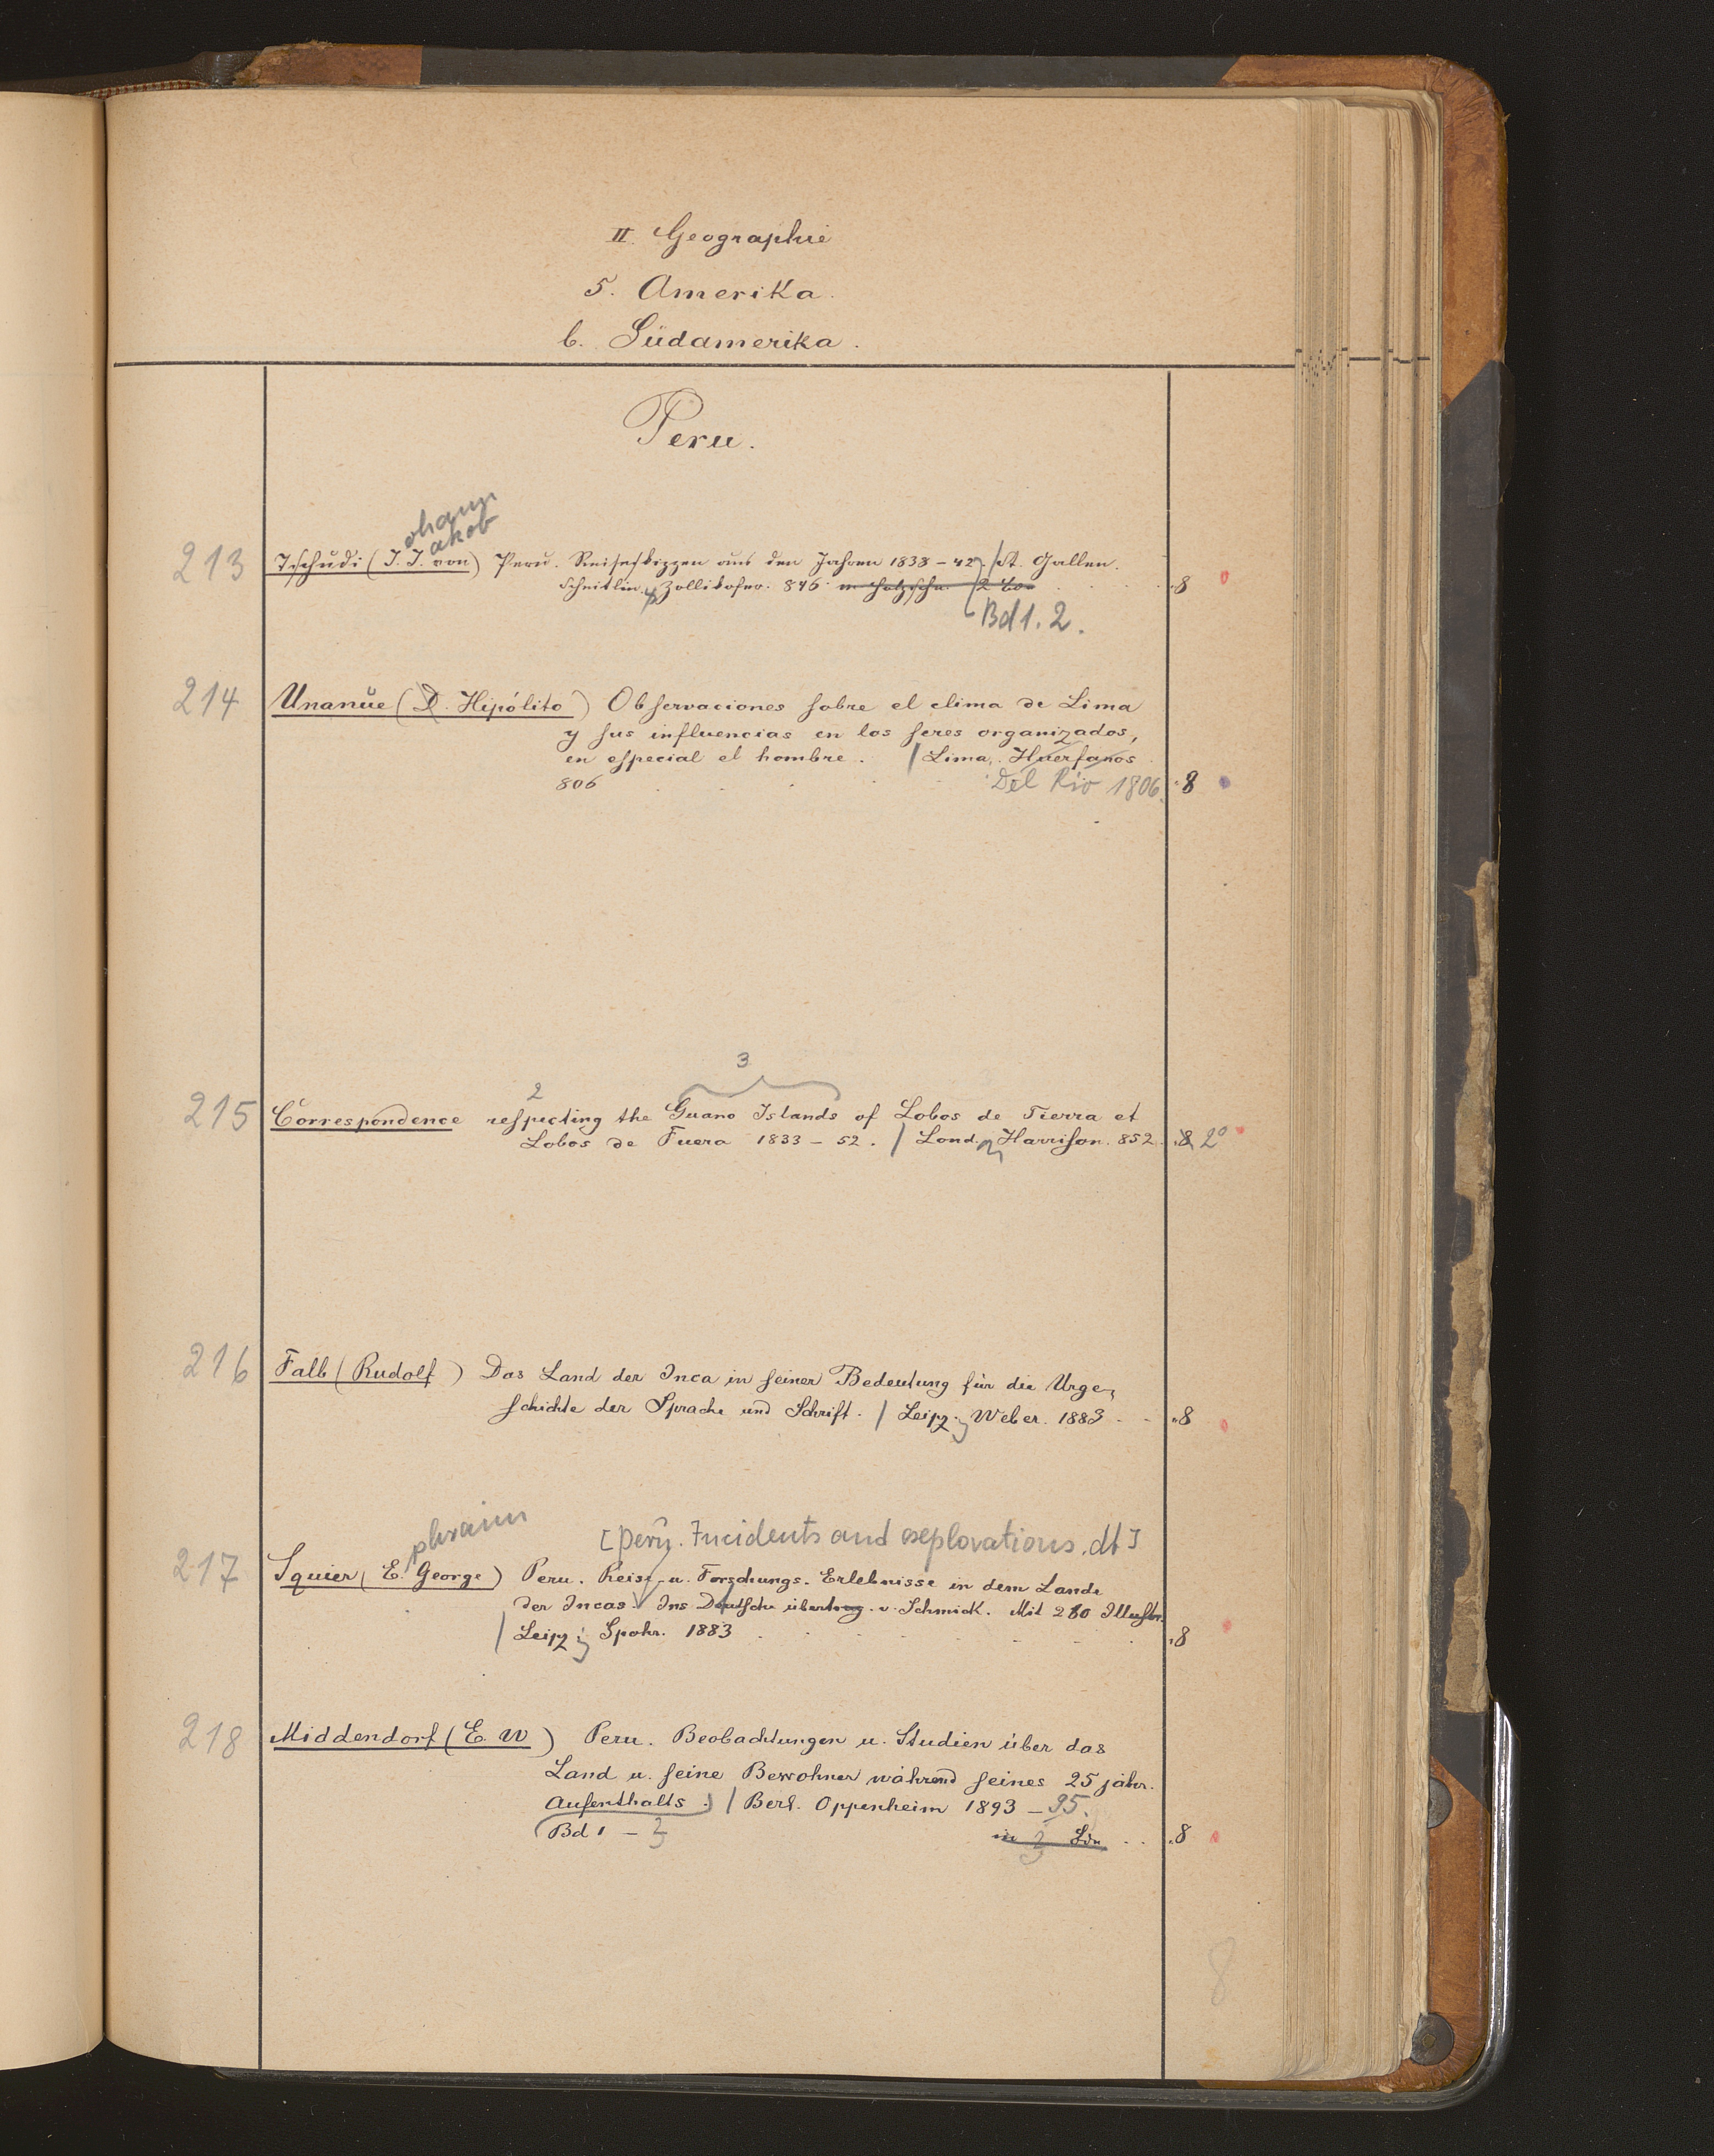 II. Geographie
5. Amerika.
b. Südamerika.
Peru.
ohann
akob
213 Tschudi (J. J. von) Peru. Reiseskizzen aus den Jahren 1838-42. / St. Gallen.
Scheitlin u. Zollikofer. 846. m. Holzschn. 2 Bde 8
Bd 1. 2.
214 Unanúe (D. Hipólito) Observaciones sobre el clima de Lima
y sus influencias en los seres organizados,
en especial el hombre. / Lima. Huerfanos
806 Del Rio 1806. 8
3
2
215 Correspondence respecting the Guano Islands of Lobos de Tierra et
Lobos de Fuera 1833-52. / Lond. Harrison. 852 8 2°
216 Falb (Rudolf) Das Land der Inca in seiner Bedeutung für die Urge-
schichte der Sprache und Schrift. / Leipz. Weber. 1883 8
phraim
[Peru. Incidents and explorations. dt]
217 Squier (E. George) Peru. Reise- u. Forschungs-Erlebnisse in dem Lande
der Incas. Ins Deutsche übertrag. v. Schmick. Mit 280 Illustr.
/ Leipz. Spohr. 1883 8
218 Middendorf (E. W) Peru. Beobachtungen u. Studien über das
Land u. seine Bewohner während seines 25 jähr.
Aufenthalts. / Berl. Oppenheim 1893-95.
Bd 1 - 3 in 3 Bdn 8
8